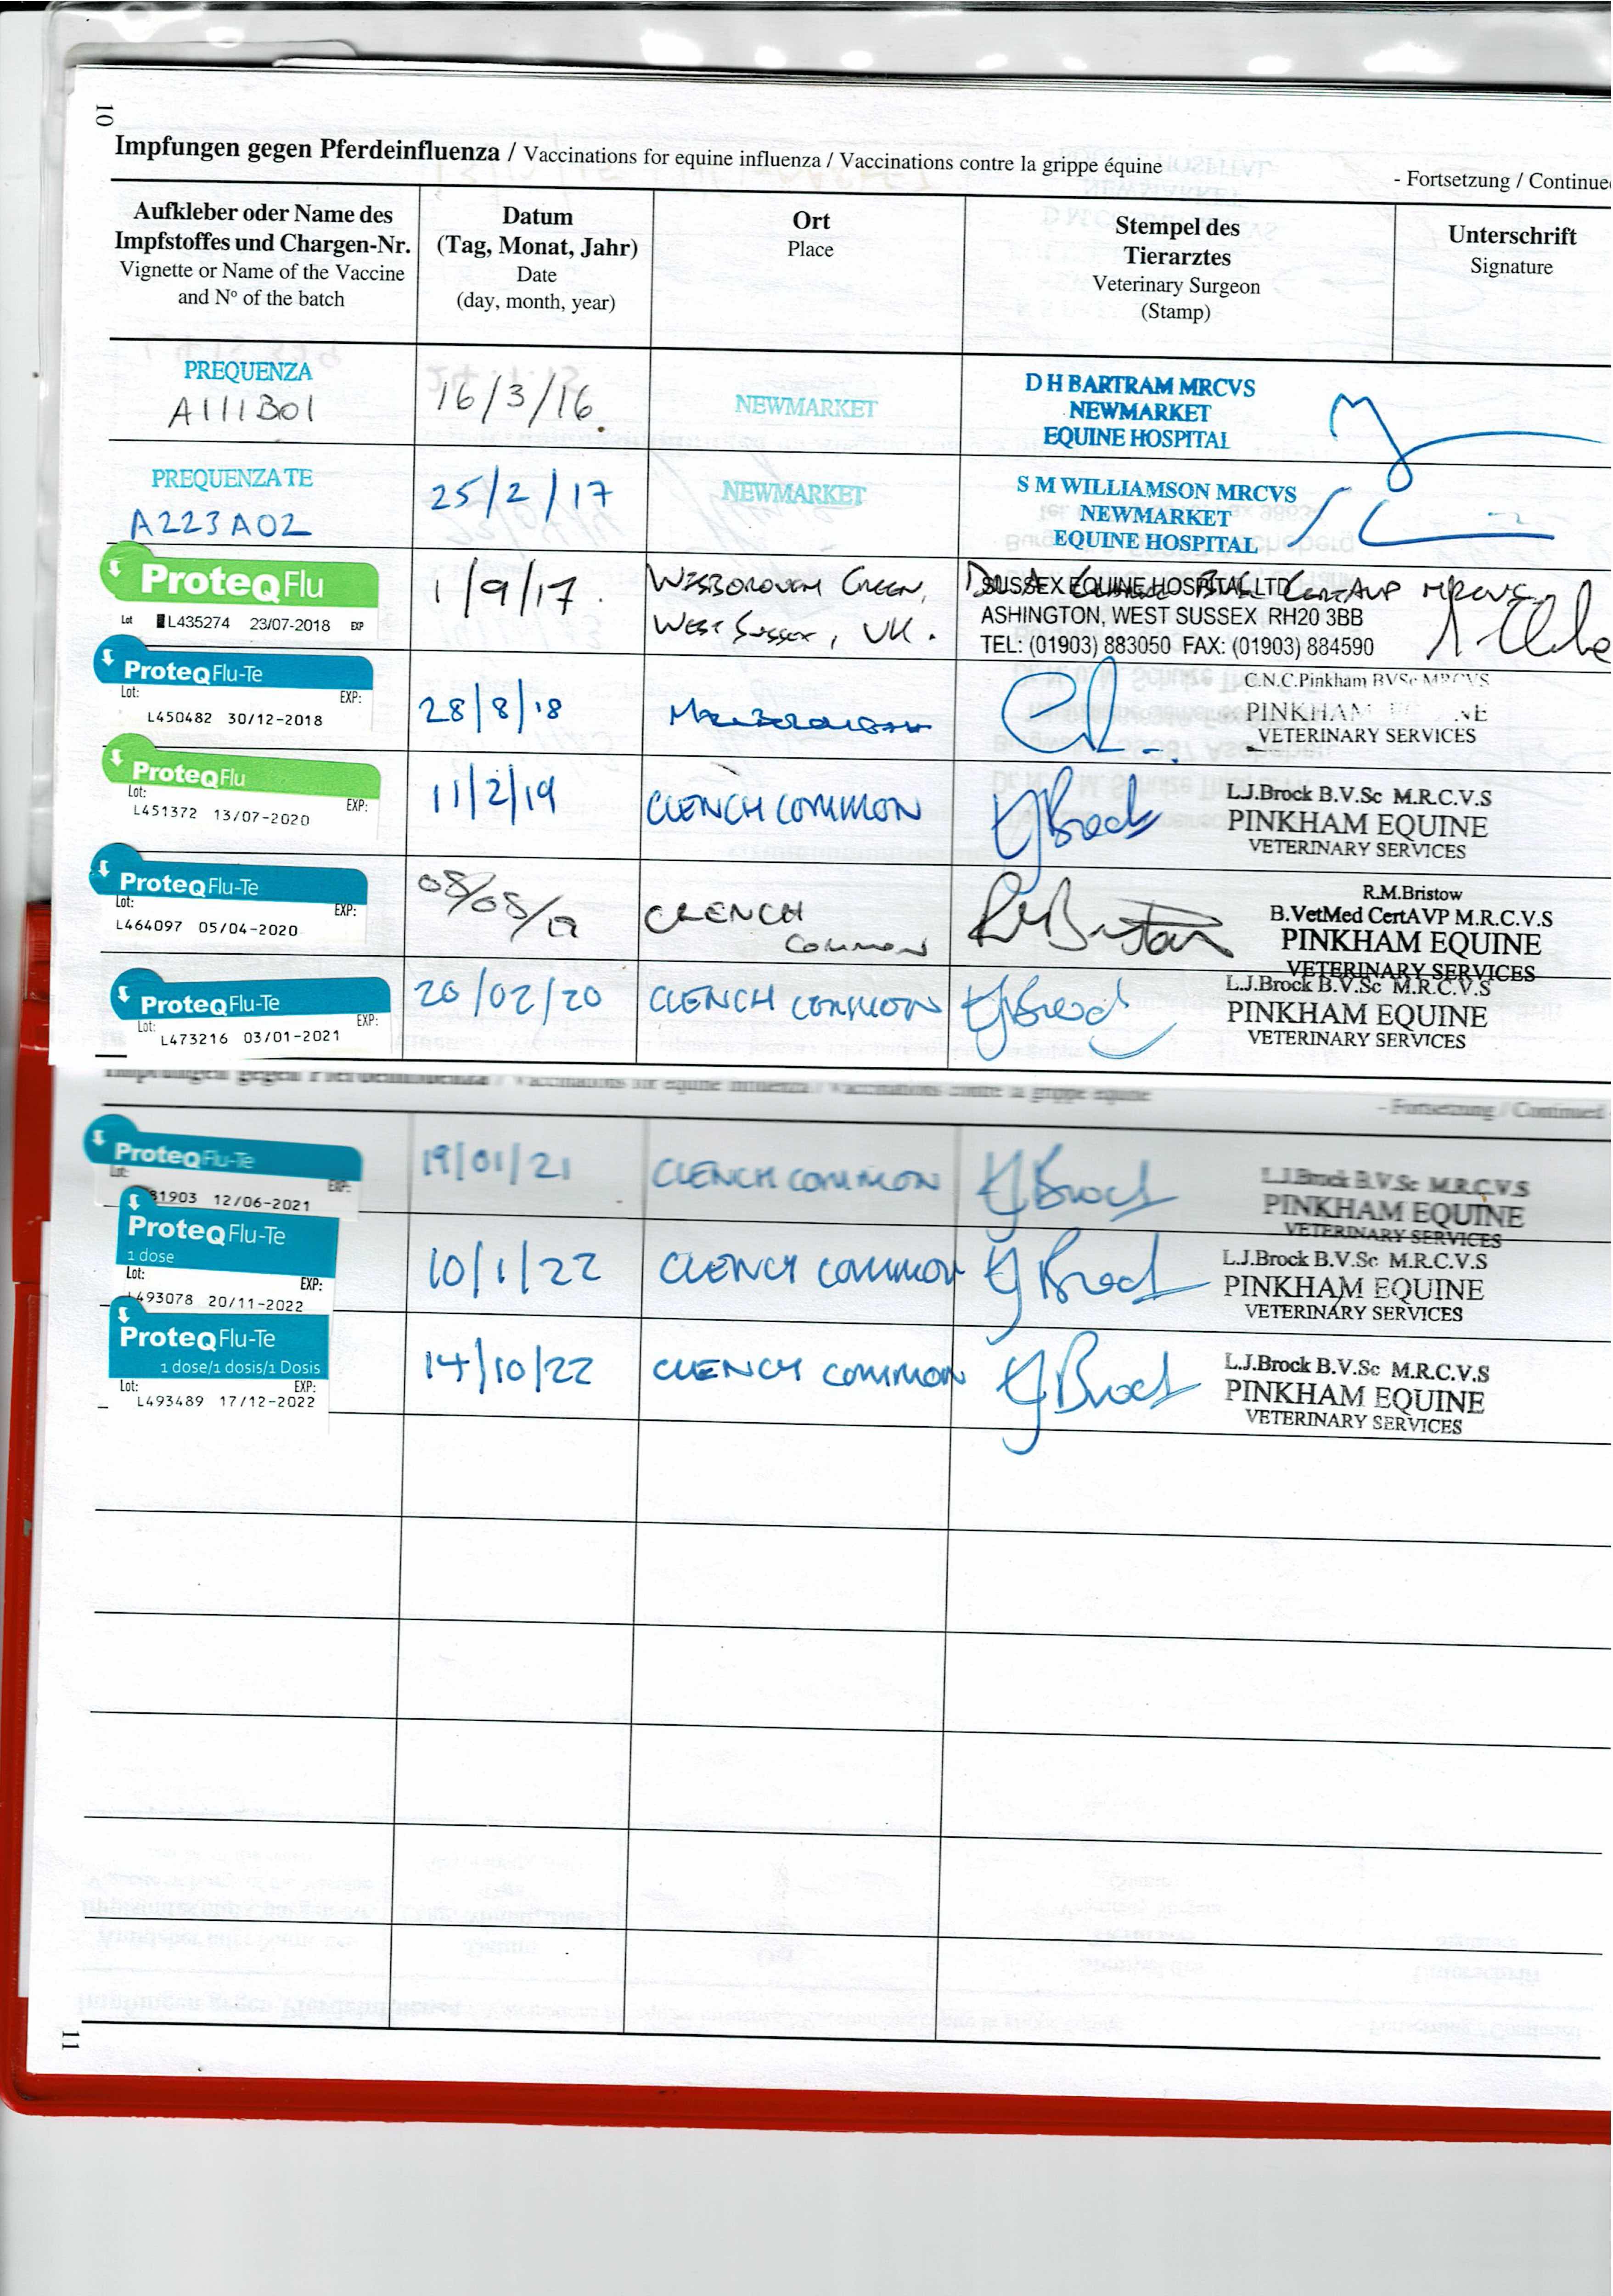 10
Impfungen gegen Pferdeinfluenza / Vaccinations for equine influenza / Vaccinations contre la grippe équine
- Fortsetzung / Continue
Aufkleber oder Name des Impfstoffes und Chargen-Nr.
Vignette or Name of the Vaccine and Nº of the batch
Datum
(Tag, Monat, Jahr)
Date
(day, month, year)
Ort
Place
Stempel des
Tierarztes
Veterinary Surgeon
(Stamp)
Unterschrift
Signature
PREQUENZA
A111B01
16/3/16
NEWMARKET
D H BARTRAM MRCVS
NEWMARKET
EQUINE HOSPITAL
PREQUENZA TE
A223A02
25/2/17
NEWMARKET
S M WILLIAMSON MRCVS
NEWMARKET
EQUINE HOSPITAL
ProteqFlu
Lot L435274 23/07-2018 EXP
1/9/17.
WISBOROUGH GREEN,
WEST SUSSEX, UK.
SUSSEX EQUINE HOSPITAL LTD CertAVP MRCVS
ASHINGTON, WEST SUSSEX RH20 3BB
TEL: (01903) 883050 FAX: (01903) 884590
ProteqFlu-Te
Lot: EXP:
L450482 30/12-2018
28/8/18
C.N.C.Pinkham BVSc MRCVS
PINKHAM
VETERINARY SERVICES
ProteqFlu
Lot: EXP:
L451372 13/07-2020
11/2/19
CLENCH COMMON
L.J.Brock B.V.Sc M.R.C.V.S
PINKHAM EQUINE
VETERINARY SERVICES
ProteqFlu-Te
Lot: EXP:
L464097 05/04-2020
08/08/19
CLENCH
COMMON
R.M.Bristow
B.VetMed CertAVP M.R.C.V.S
PINKHAM EQUINE
VETERINARY SERVICES
ProteqFlu-Te
Lot: EXP:
L473216 03/01-2021
20/02/20
CLENCH COMMON
L.J.Brock B.V.Sc M.R.C.V.S
PINKHAM EQUINE
VETERINARY SERVICES
Impfungen gegen Pferdeinfluenza / Vaccinations for equine influenza / Vaccinations contre la grippe équine
- Fortsetzung / Continued
ProteqFlu-Te
Lot: EXP:
81903 12/06-2021
19/01/21
CLENCH COMMON
L.J.Brock B.V.Sc M.R.C.V.S
PINKHAM EQUINE
VETERINARY SERVICES
ProteqFlu-Te
1 dose
Lot: EXP:
L493078 20/11-2022
10/1/22
CLENCH COMMON
L.J.Brock B.V.Sc M.R.C.V.S
PINKHAM EQUINE
VETERINARY SERVICES
ProteqFlu-Te
1 dose/1 dosis/1 Dosis
Lot: EXP:
L493489 17/12-2022
14/10/22
CLENCH COMMON
L.J.Brock B.V.Sc M.R.C.V.S
PINKHAM EQUINE
VETERINARY SERVICES
11